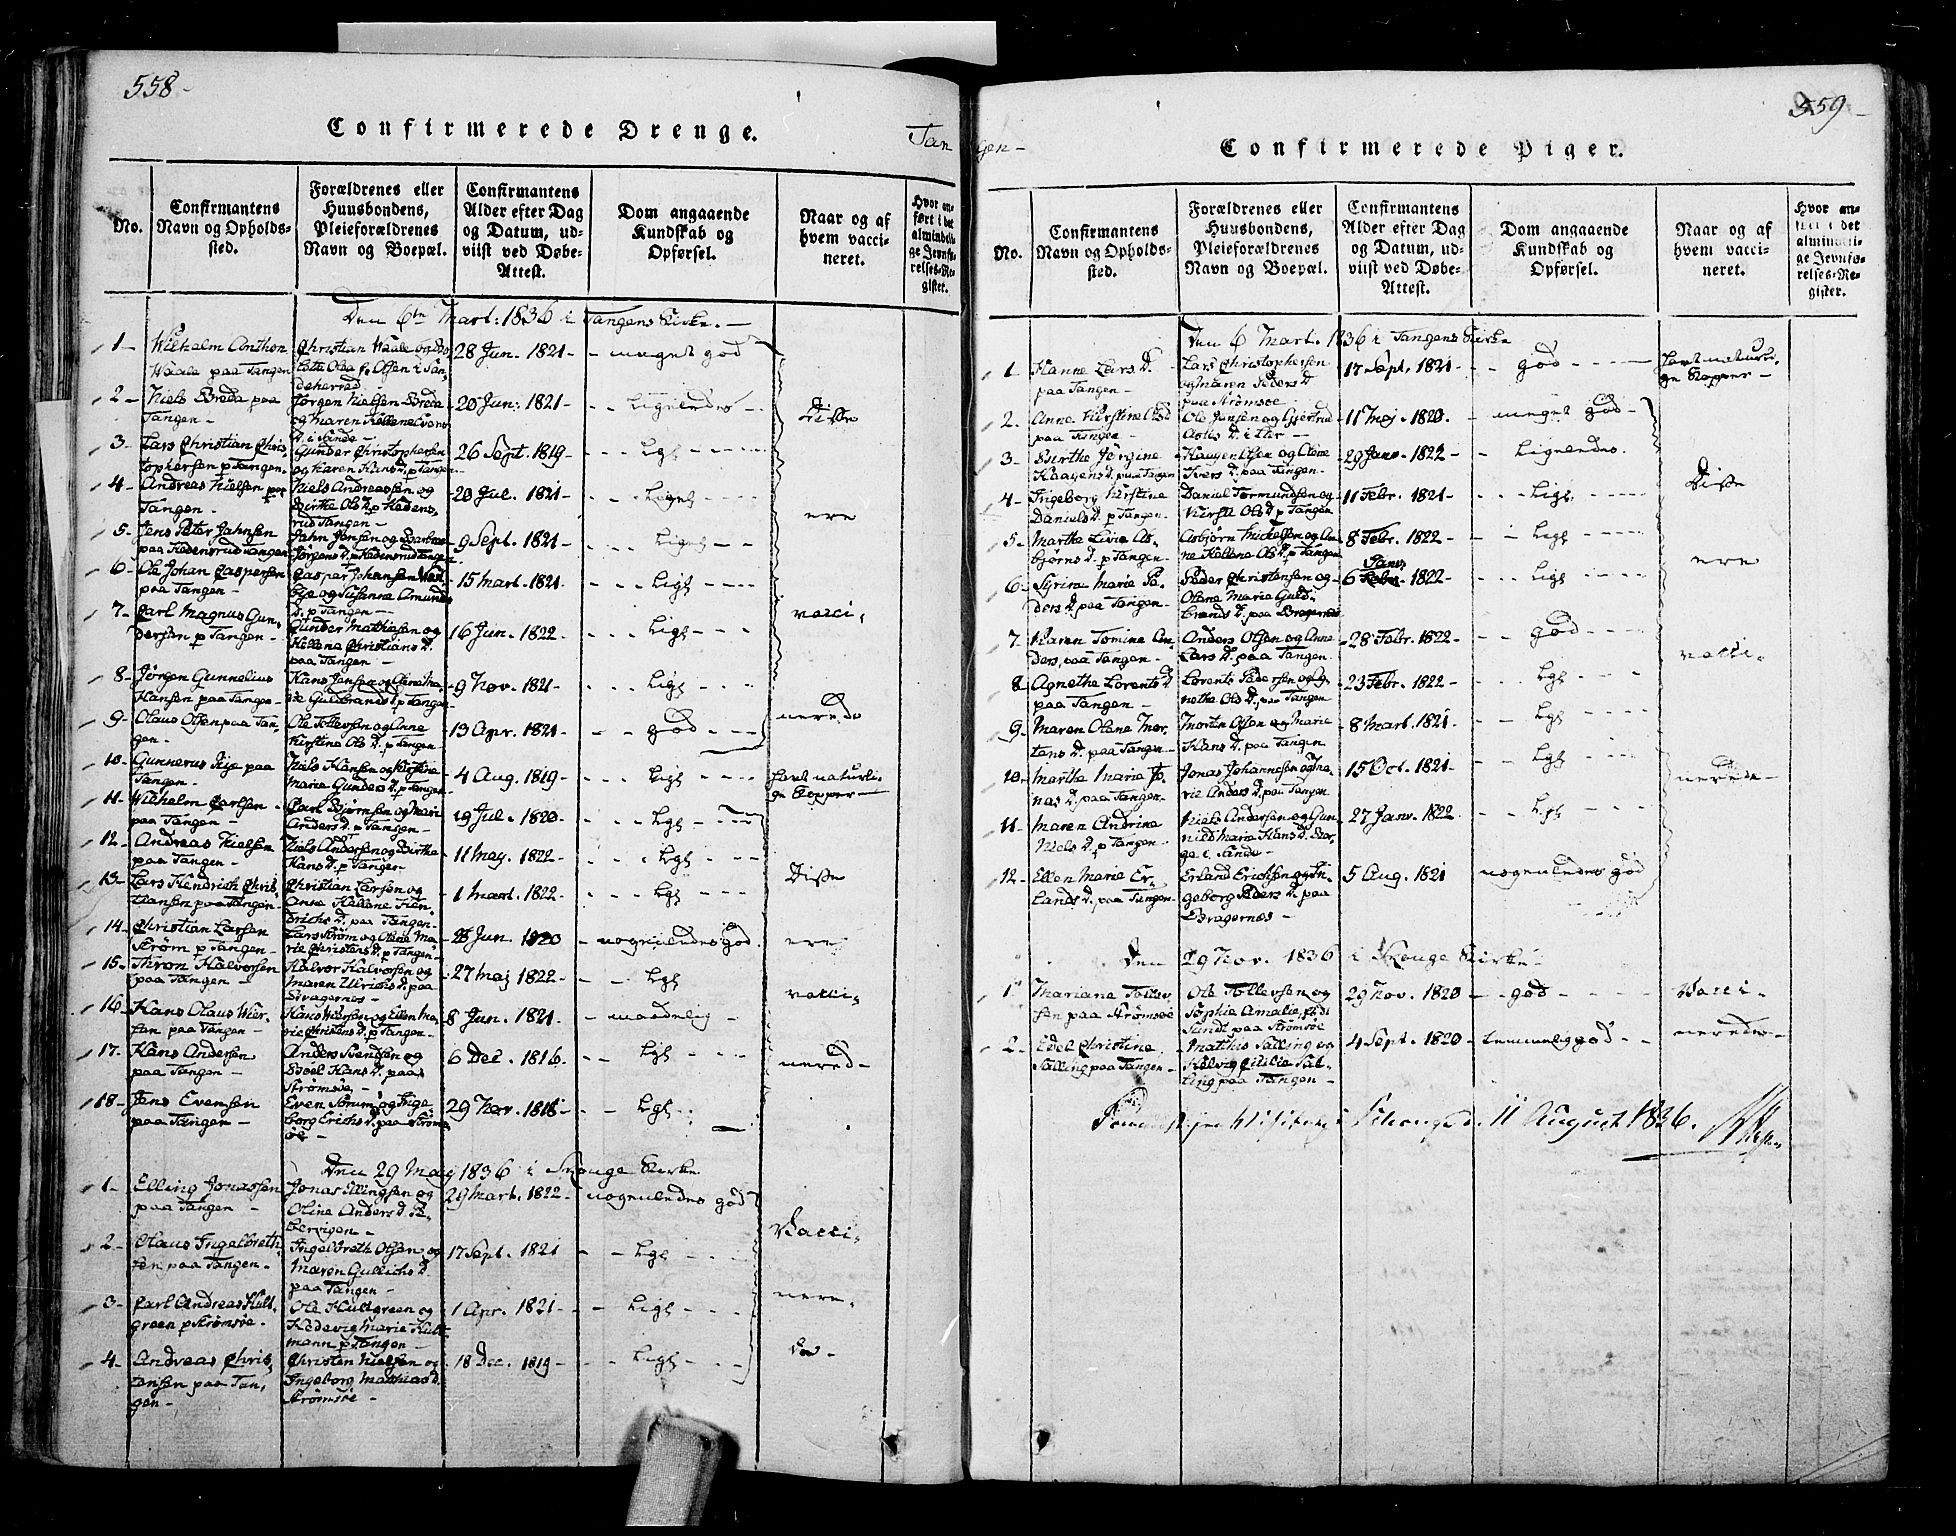 558-
Confirmerede Drenge.
Tan
No.
Confirmantens
Navn og Opholds-
sted.
Forældrenes eller
Huusbondens,
Pleieforældrenes
Navn og Boepæl.
Confirmantens
Alder efter Dag
og Datum, ud-
viist ved Døbe-
Attest.
Dom angaaende
Kundskab og
Opførsel.
Naar og af
hvem vacci-
neret.
Hvor an-
ført i det
alminde-
ge Jevnfø-
relses-Re-
gister.
Den 6te Mart. 1836 i Tangens Kirke. -
1- Wilhelm Anthon
Waale paa Tangen
Christian Waale og
28 Jun. 1821- - meget god
2- Niels Breda paa
Tangen-
Jørgen Nielsen Breda
og Maren
20 Jun. 1821- - - Ligeledes -
3- Lars Christian Chris
tophersen p Tangen.
Gunder Christophersen
og Karen Hans D. p Tangen
26 Sept. 1819- - - Lgl - - -
4- Andreas Nielsen paa
Tangen-
Niels Andreassen og
Birthe Ols D. p Hedens,
rud Tangen-
20 Jul. 1821 - - - Ligel - - -
5- Jens Peter Jahnsen
paa Hedensrud Tangen
Jahn Jensen og Barbra
Jørgens D. p Hedensrud Tangen
9 Sept. 1821- - - Ligel - -
6- Ole Johan Caspersen
paa Tangen-
Casper Johansen
bye og Susanne Amunds
D. p Tangen-
15 Mart. 1821- - - Ligl - - -
7- Carl Magnus Gun,
dersen p Tangen-
Gunder Mathiesen og
Hellene Christians D.
paa Tangen-
16 Jun. 1822- - - Ligl - - -
8- Jørgen Gunnelius
Hansen paa Tangen-
Hans Jensen og Anne Ma,
rie Guldbrands D. p Tangen
9 Nov. 1821- - - Ligl - - -
9- Olaus Olsen paa Tan,
gen-
Ole Tollevsen og Anne
Kirstine Ols D. p Tangen
13 Apr. 1821- - - god - - -
10- Gunnerus Rije paa
Tangen-
Niels Hansen og Kirstine
Marie Gunders D. p Tangen
4 Aug. 1819- - - Ligl - - -
havt naturli,
ge Kopper-
11- Wilhelm Carlsen-
paa Tangen-
Carl Bjørnsen og Mari
Anders D. p Tangen-
19 Jul. 1820- - - Lgl - -
12- Andreas Nielsen
paa Tangen-
Niels Andersen og Birthe
Hans D. p Tangen
11 May. 1822- - - Lgl - -
13- Lars Hendrich Chris,
tiansen paa Tangen-
Christian Larsen og
Anne Hellene Hen,
drichs D. paa Tangen-
1 Mart. 1822- - - Lgl - -
14- Christian Larsen
Strøm p Tangen-
Lars Strøm og Olene Ma,
rie Christens D. p Tangen-
Jun. 1820 - nogenledes god.
15- Thron Halvorsen
paa Tangen-
Halvor Halvorsen og
Maren Ulrichs D. paa
Bragernes-
27 Maj 1822- - - Lgl
16- Hans Olaus Wier,
sen paa Tangen-
Hans Wiersen og Ellen Ma,
rie Christens D. p Tangen-
8 Jun. 1821- - maadelig -
17. Hans Andersen
paa Tangen-
Anders Svendsen og
Hans D. paa
Strømsøe-
6 Dec. 1816. - - Lgl - -
18- Jens Evensen
paa Tangen-
Even og Inge
borg Erichs D. paa Strøms
øe-
29 Nov. 1818 - - Lgl.
Disse
ere
vacci,
nerede
Disse
ere
vacci,
nered-
Den 29 May 1836 i Skouge Kirke.
1- Elling Jonassen
paa Tangen-
Jonas Ellingsen og
Oline Anders D.
bervigen-
29 Mart. 1822- nogenledes god
2- Olaus Ingelbreth
sen paa Tangen-
Ingelbreth Olsen og
Maren Gullichs D.
paa Tangen-
17 Sept. 1821 - - Lgl - - -
3- Carl Andreas Hult,
green p Strømsøe.
Ole Hultgreen og
Hedevig Marie
mann p Tangen-
1 Apr. 1821- - - Ligl - - -
4- Andreas Chris,
tensen paa Tan,
gen-
Christen Nielsen og
Ingeborg Matthias D.
Strømsøe-
18 Dec. 1819- - - Ligl - - -
Vacci,
nere,
de-
559-
gen-
Confirmerede Piger.
No.
Confirmantens
Navn og Opholds-
sted.
Forældrenes eller
Huusbondens,
Pleieforældrenes
Navn og Boepæl.
Confirmantens
Alder efter Dag
og Datum, ud-
viist ved Døbe-
Attest.
Dom angaaende
Kundskab og
Opførsel.
Naar og af
hvem vacci-
neret.
Hvor an-
ført i det
alminde-
ge Jevnfø-
relses-Re-
gister.
Den 6 Mart. 1836 i Tangens Kirke
1. Hanne Lars D.
paa Tangen-
Lars Christophersen
og Maren Peders D.
paa Strømsøe
17 Sept. 1821 - - god - - -
havt naturli,
ge Kopper-
2. Anne Kirstine
paa Tangen-
Ole Jensen og Gjertrud
11 Maj. 1820. - meget god-
3- Birthe Jørgine
Haagens D. paa Tangen
Haagen Olsen og Olene
Ivers D. paa Tangen-
29 Janv. 1822- - Ligeledes.
4- Ingeborg Kirstine
Daniels D. p Tangen-
Daniel Tormundsen og
Kirsti Ols D. p Tangen
11 Febr. 1821- - - Ligl. - - -
5- Marthe Lovise As,
bjørns D. p Tangen-
Asbjørn Mickelsen og An,
ne Hellene Ols D. p Tangen
8 Febr. 1822- - - Ligl - - -
6- Syrine Marie Pe,
ders D. paa Tangen-
Peder Christensen og
Olene Marie Guld,
brands D. paa Bragernes
6 Janv 1822- - - Ligl - - -
7. Karen Tomine An
ders, paa Tangen-
Anders Olsen og Anne
Lars D. paa Tangen-
28 Febr. 1822- - - god - - -
8 Agnethe Lorents D
paa Tangen-
Lorents Pedersen og Ag,
nethe Ols D, paa Tangen
23 Febr. 1822- - - Lgl - -
9- Maren Olene Mor,
tens D. paa Tangen-
Morten Olsen og Marie
Hans D. paa Tangen
8 Mart. 1821- - - Lgl - -
10- Marthe Marie Jo,
nas D. paa Tangen-
Jonas Johannesen og Ma,
rie Anders D. paa Tangen
15 Oct. 1821- - - Lgl - - -
11- Maren Andrine
Niels D. p Tangen-
Niels Andersen og Gun
nild Marie Hans D.
ge i Sande-
27 Janv. 1822. - - Lgl - - -
12- Ellen Marie Er,
lands D. paa Tangen-
Erland Erichsen og In,
geborg Peders D. paa
Bragernæs-
5 Aug. 1821 nogenledes god
Disse
ere
vacci,
nerede-
Den 29 Nov. 1836 i Skouge Kirke
1- Mariane Tollev,
sen paa Strømsøe
Ole Tollevsen og
Sophie Amalie
Sundt paa Strømsøe
29 Nov. 1820 - - god - - -
2- Edel Christine
Salling paa Tangen-
Matthis Salling og
Hedvig Cicilie Sal,
ling paa Tangen-
4 Sept. 1820- temmelig god - -
Vacci,
nerede-
11 August 1836.